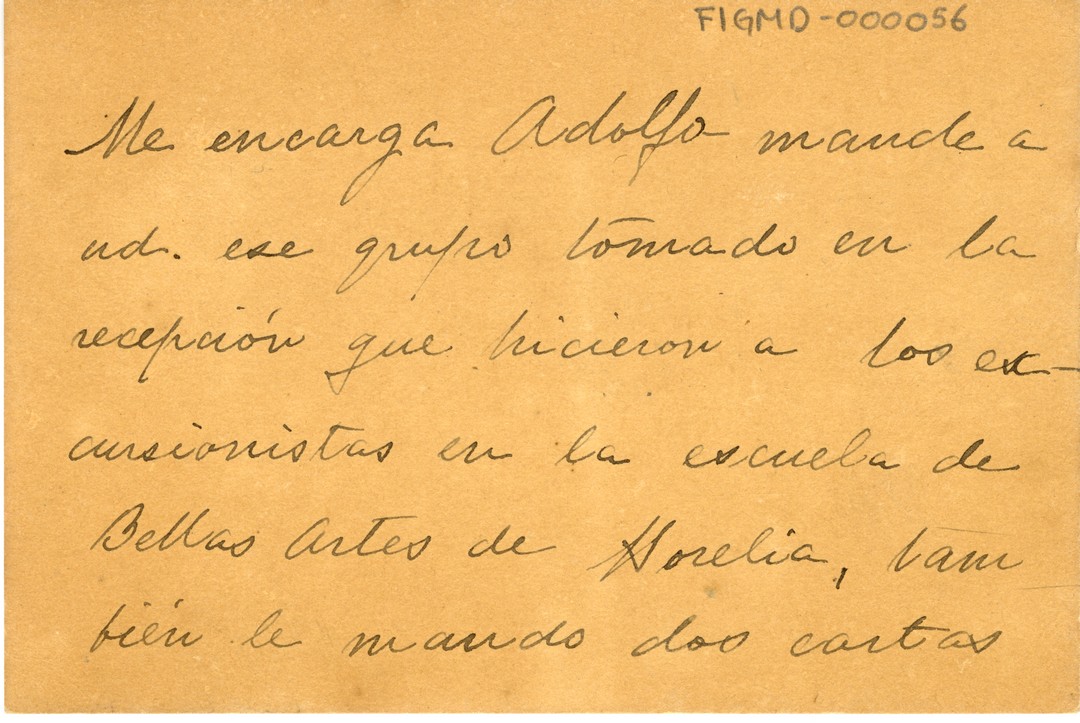 FIGMD-000056
Me encarga Adolfo mande a
ud. ese grupo tomado en la
recepción que hicieron a los ex-
cursionistas en la escuela de
Bellas Artes de Morelia, tam
bién le mando dos cartas